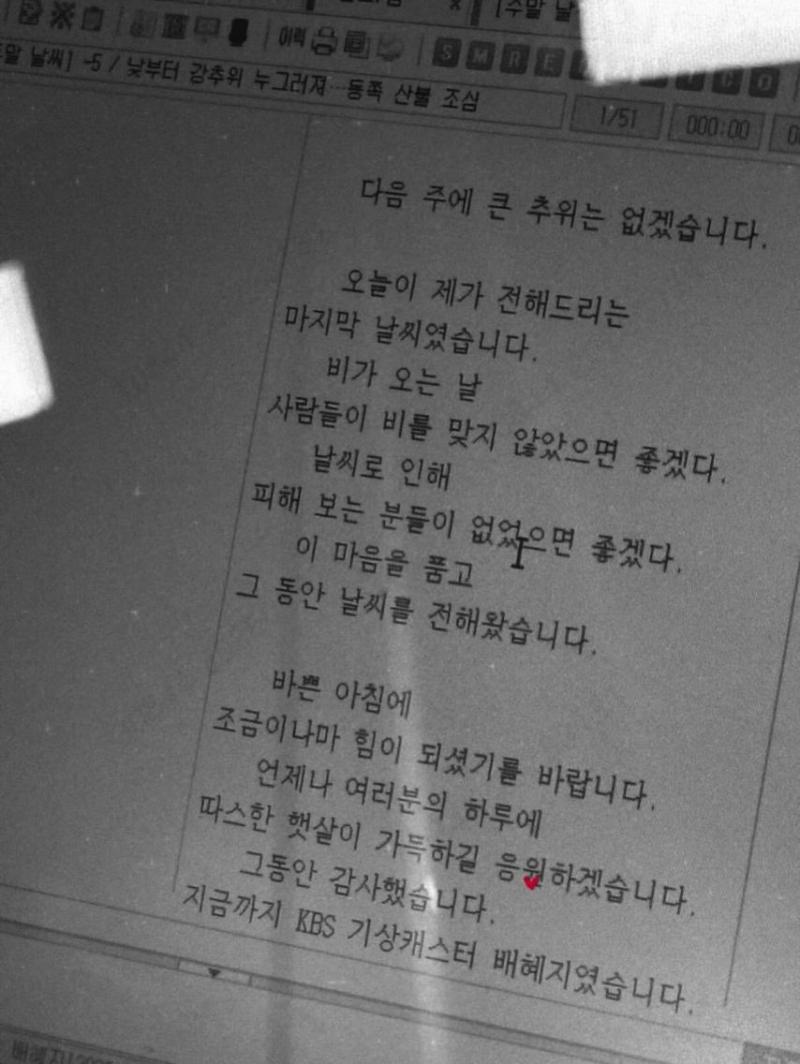 [주말 날
이력
S M R E
말 날씨] -5 / 낮부터 강추위 누그러져…동쪽 산불 조심
1/51 000:00
다음 주에 큰 추위는 없겠습니다.
오늘이 제가 전해드리는
마지막 날씨였습니다.
비가 오는 날
사람들이 비를 맞지 않았으면 좋겠다.
날씨로 인해
피해 보는 분들이 없었으면 좋겠다.
이 마음을 품고
그 동안 날씨를 전해왔습니다.
바쁜 아침에
조금이나마 힘이 되셨기를 바랍니다.
언제나 여러분의 하루에
따스한 햇살이 가득하길 응원하겠습니다.
그동안 감사했습니다.
지금까지 KBS 기상캐스터 배혜지였습니다.